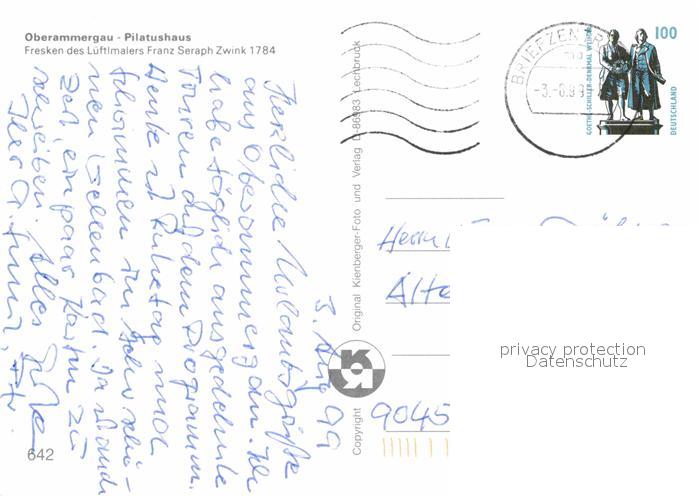 Oberammergau - Pilatushaus
Fresken des Lüftlmalers Franz Seraph Zwink 1784
BRIEFZENTR
-3.-8.99
100
GOETHE-SCHILLER-DENKMAL WEIMAR
DEUTSCHLAND
Copyright Original Kienberger-Foto und Verlag D-86983 Lechbruck
3. Aug 99
Herzliche Urlaubsgrüße
aus Oberammergau. Ich
habe täglich ausgedehnte
Touren auf dem Programm.
Heute ist Ruhetag und
Schwimmen im
Wellenbad. Da
Zeit, ein paar Karten zu
schreiben. Alles Gute
Herrn
Alte
9045
privacy protection
Datenschutz
642